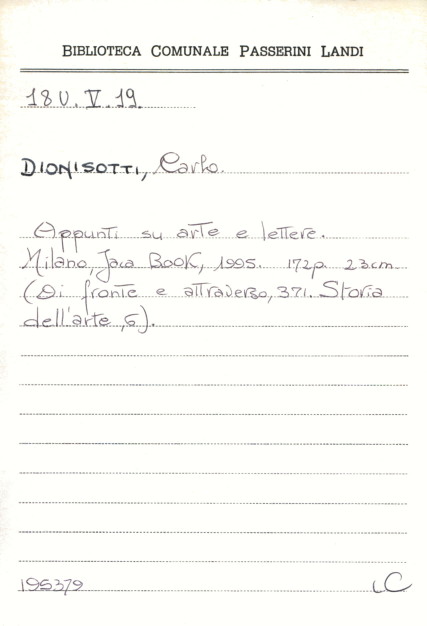 BIBLIOTECA COMUNALE PASSERINI LANDI
18 U. V. 19.
DIONISOTTI, Carlo.
Appunti su arte e lettere.
Milano, Jaca Book, 1995. 172p. 23cm.
(Di fronte e attraverso, 371. Storia
dell'arte, 6).
195379